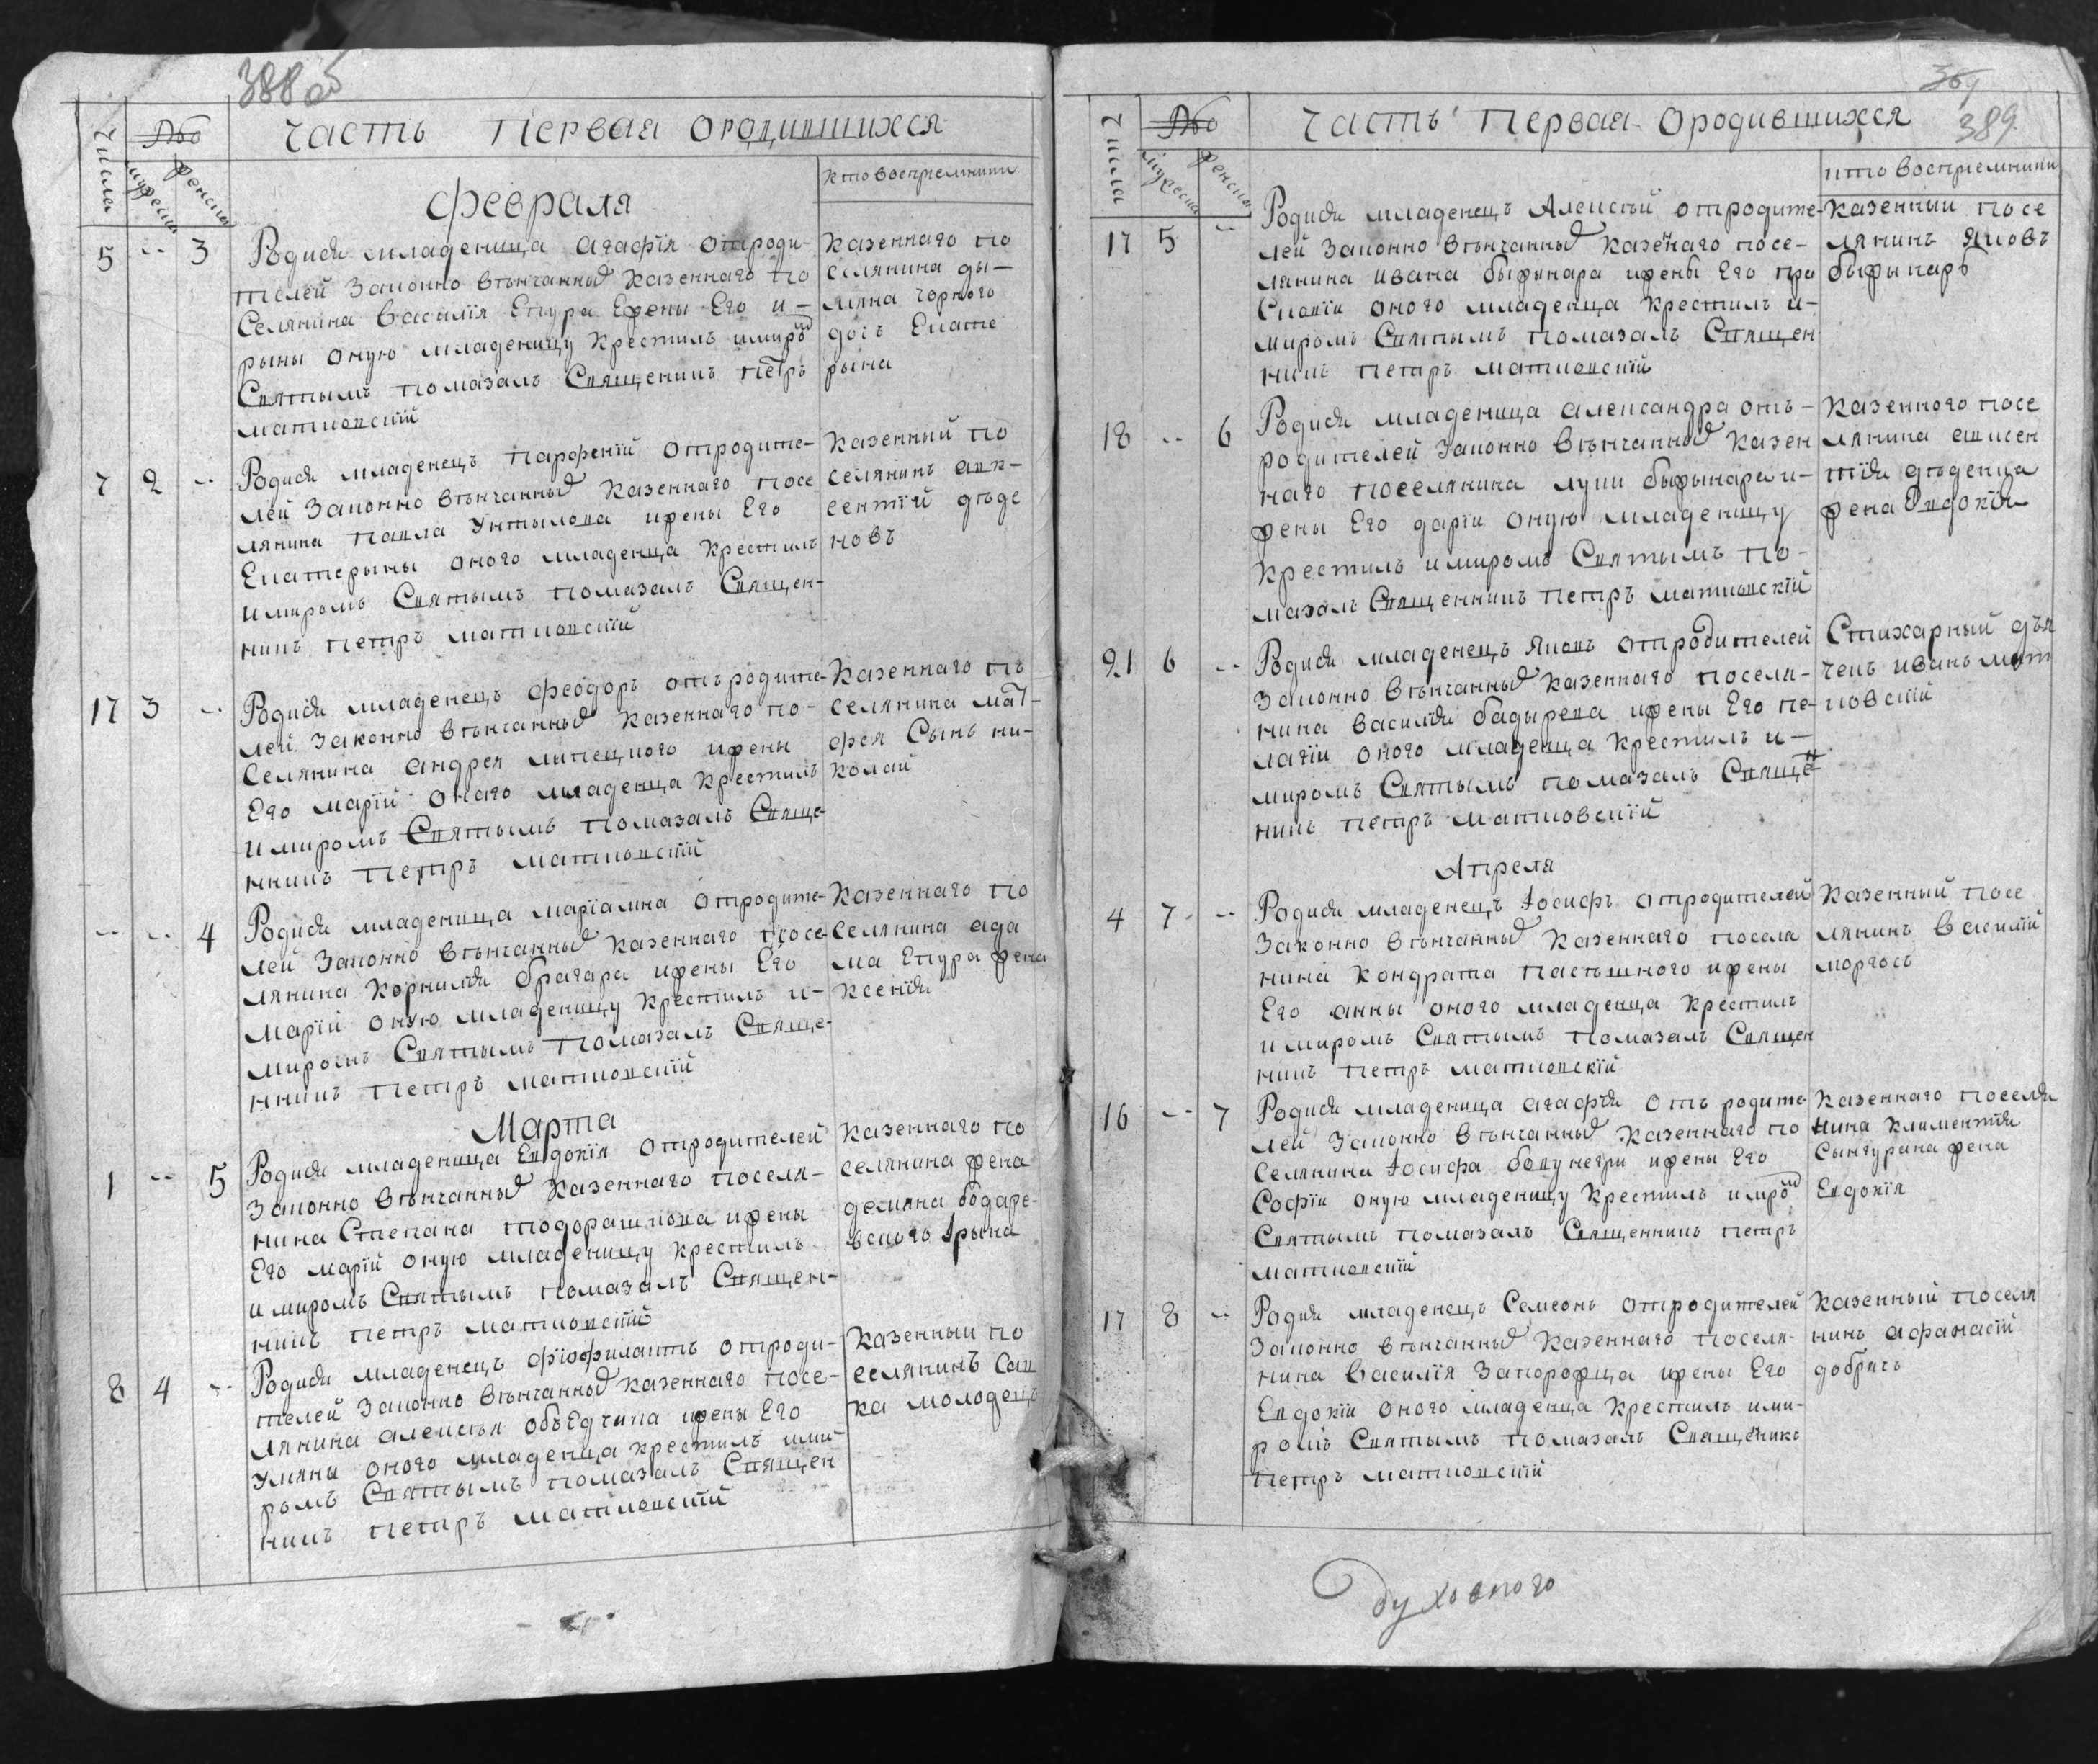 388 об
Часть Первая ородившихся
Числа
мужеска
женска
кто восприемники
Февраля
5 -- 3
Родися младеница Агафїя отроди-
телей Законно венчанных Казеннаго По
Селянина Василїя Екура Ежены Его И-
рыны оную младеницу Крестилъ имиром
Святымъ помазалъ Священикъ Петръ
Матковскїй
Казеннаго по
селянина ды-
мяна Чорного
дочь Екате
рына
7 2 --
Родися младенецъ Парфенїй отродите-
лей Законно венчанных Казеннаго посе
лянина Павла Унтылова ижены Его
Екатерыны оного младенца Крестилъ
имиромъ Святымъ помазалъ Священ-
никъ Петръ Матковскїй
Казенный по
селянинъ авк-
сентїй деде
новъ
17 3 --
Родися младенецъ Феодоръ отъродите-
лей Законно венчанных Казеннаго по-
Селянина андрея липецкого ижены
Его марїй оного младенца Крестилъ
имиромъ Святымъ помазалъ Свяще-
нникъ Петръ Матковскїй
Казеннаго по
селянина мат-
фея Сынъ ни-
колай
-- -- 4
Родися младеница марїамна отродите-
лей Законно венчанных Казеннаго посе
лянина Корнилїя брагара ижены Его
марїй оную младеницу Крестилъ и-
миромъ Святымъ помазалъ Свяще-
нникъ Петръ Матковскїй
Казеннаго по
Селянина ада
ма Екура жена
Ксенїя
Марта
1 -- 5
Родися младеница Евдокїя отродителей
Законно венчанных Казеннаго поселя-
нина Степана тодорашкова ижены
Его марїй оную младеницу Крестилъ
имиромъ Святымъ помазалъ Священ-
никъ Петръ Матковскїй
Казеннаго по
селянина жена
демяна бодаре-
вского Ірына
8 4 --
Родися младенецъ Фїофилактъ отроди-
телей Законно венчанных Казеннаго посе-
лянина алексея объЕдчика ижены Его
Улияны оного младенца Крестилъ ими-
ромъ Святымъ помазалъ Священ
никъ Петръ Матковскїй
Казенный по
селянинъ Сав
ка молодецъ
389
Часть Первая Ородившихся
Числа
мужеска
женска
кто восприемники
17 5 --
Родися младенецъ Алексїй отродите-
лей Законно венчанных Казеннаго посе-
лянина Ивана быфынара ижены Его пра
сковїи оного младенца Крестилъ и-
миромъ Святымъ помазалъ Священ
никъ Петръ Матковскїй
Казенный посе
лянинъ Яковъ
быфынаръ
18 -- 6
Родися младеница александра отъ-
родителей Законно венчанных Казен
наго поселянина луки быфынара и-
жены Его дарїи оную младеницу
Крестилъ имиромъ Святымъ по-
мазалъ Священникъ Петръ Матковскїй
Казенного посе
лянина авксен
тїя деденка
жена Евдокїя
21 6 --
Родися младенецъ Яковъ отродителей
Законно венчанных Казеннаго поселя-
нина Василїя бадырева ижены Его пе-
лагїи оного младенца Крестилъ и-
миромъ Святымъ помазалъ Священ
никъ Петръ Матковскїй
Стихарный дья
чекъ иванъ мат
ковскїй
Апреля
4 7 --
Родися младенецъ Іосифъ отродителей
Законно венчанных Казеннаго поселя
нина Кондрата Пастшного ижены
Его анны оного младенца Крестилъ
имиромъ Святымъ помазалъ Священ
никъ Петръ Матковскїй
Казенный посе
лянинъ Василїй
моргосъ
16 -- 7
Родися младеница агафїя отъ родите
лей Законно венчанных Казеннаго по
Селянина Іосифа бовунегри ижены Его
Софїи оную младеницу Крестилъ имиром
Святымъ помазалъ Священникъ Петръ
Матковскїй
Казеннаго поселя
нина Климентїя
Сынгурана жена
Евдокїя
17 8 --
Родися младенецъ Семеонъ отродителей
Законно венчанных Казеннаго поселя-
нина Василїя Запорожца ижены Его
Евдокїи оного младенца Крестилъ ими-
ромъ Святымъ помазалъ Священикъ
Петръ Матковскїй
Казенный поселя
нинъ афанасїй
добричъ
Духовного